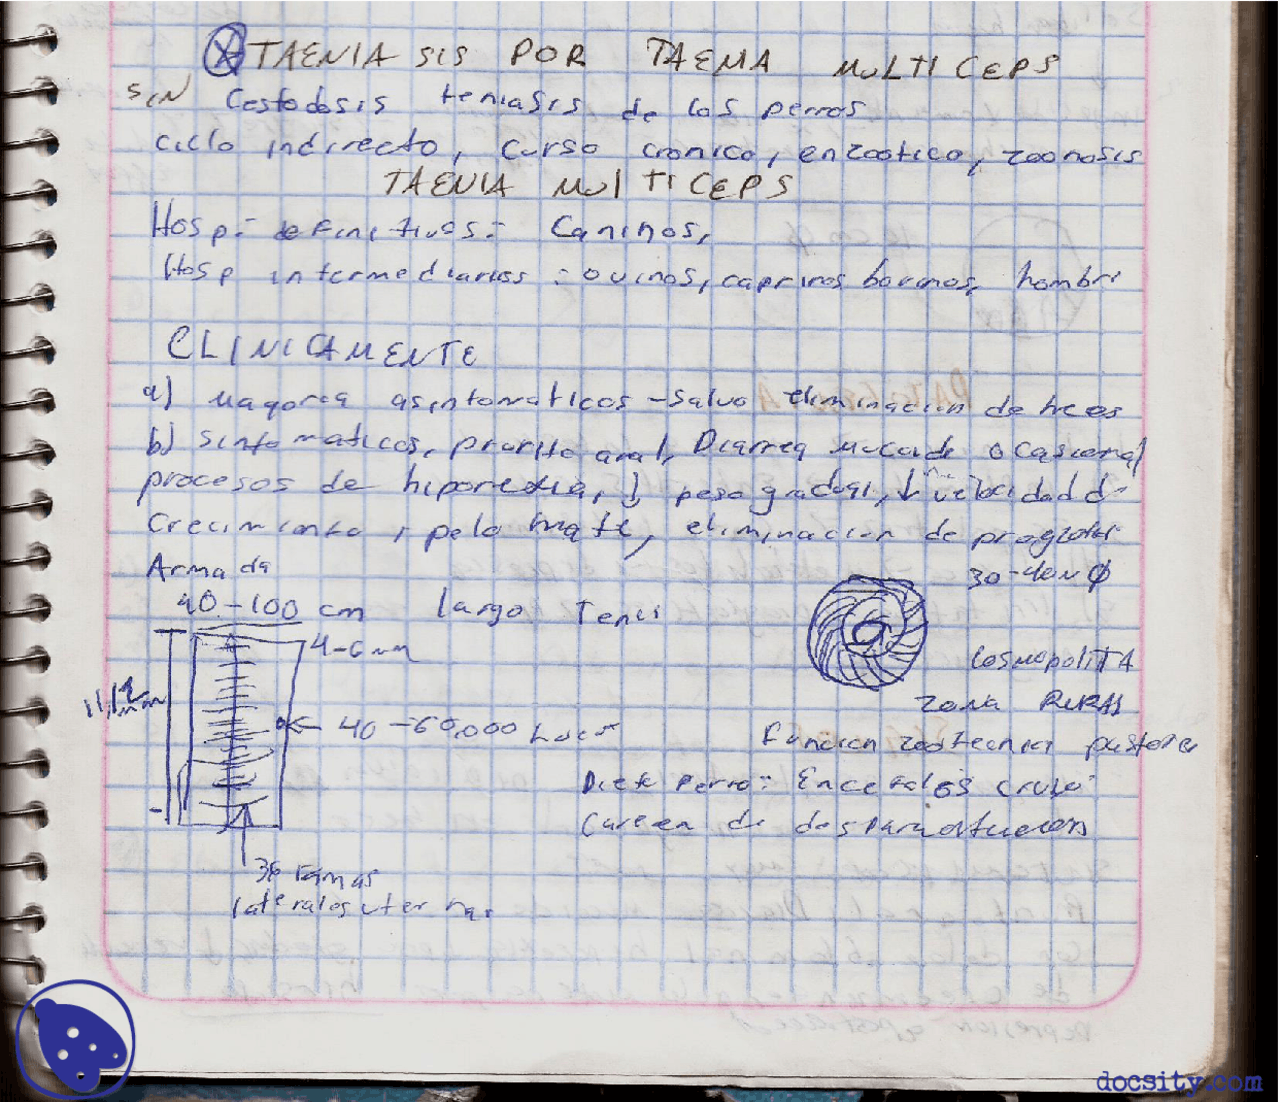 TAENIA SIS POR TAEMA MULTICEPS
SIN Cestodosis teniasis de los perros
Ciclo indirecto, curso cronico, enzootico, zoonosis
TAENIA MULTICEPS
Hosp: definitivos: Caninos,
Hosp intermediarios: ovinos, caprinos bovinos, hombre
CLINICAMENTE
a) Mayoria asintomaticos - Salvo eliminacion de heces
b) Sintomaticos, prurito anal, Diarrea mucoide ocasional
procesos de hiporexia, ↓ peso gradual, ↓ velocidad d-
Crecimiento, pelo mate, eliminacion de proglotis
Armada
30-40 ø
40-100 cm largo Tenis
4-6 mm
Cosmopolita
Zona RURAL
← 40-60,000 huev
Funcion zootecnica pastore
Dieta Perro: Encefalos crudo
Carecen de desparasitacion
36 ramas
laterales uterinas
docsity.com